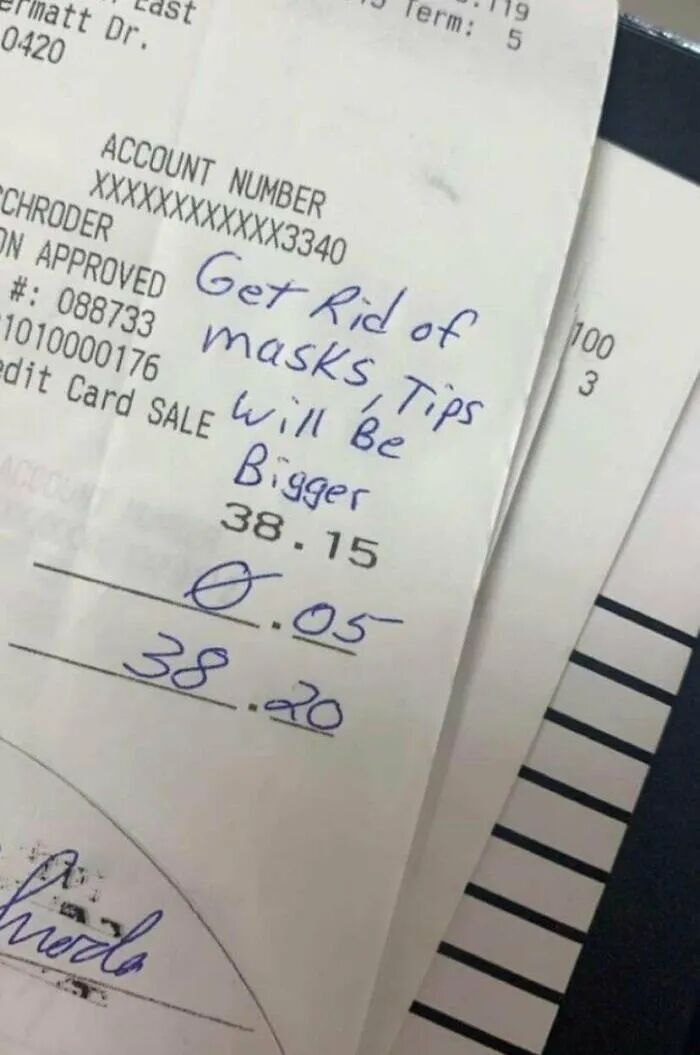 East
ermatt Dr.
0420
119
Term: 5
ACCOUNT NUMBER
XXXXXXXXXXXX3340
CHRODER
ON APPROVED
#: 088733
1010000176
edit Card SALE
Get Rid of
masks, Tips
will Be
Bigger
38.15
0.05
38.20
100
3